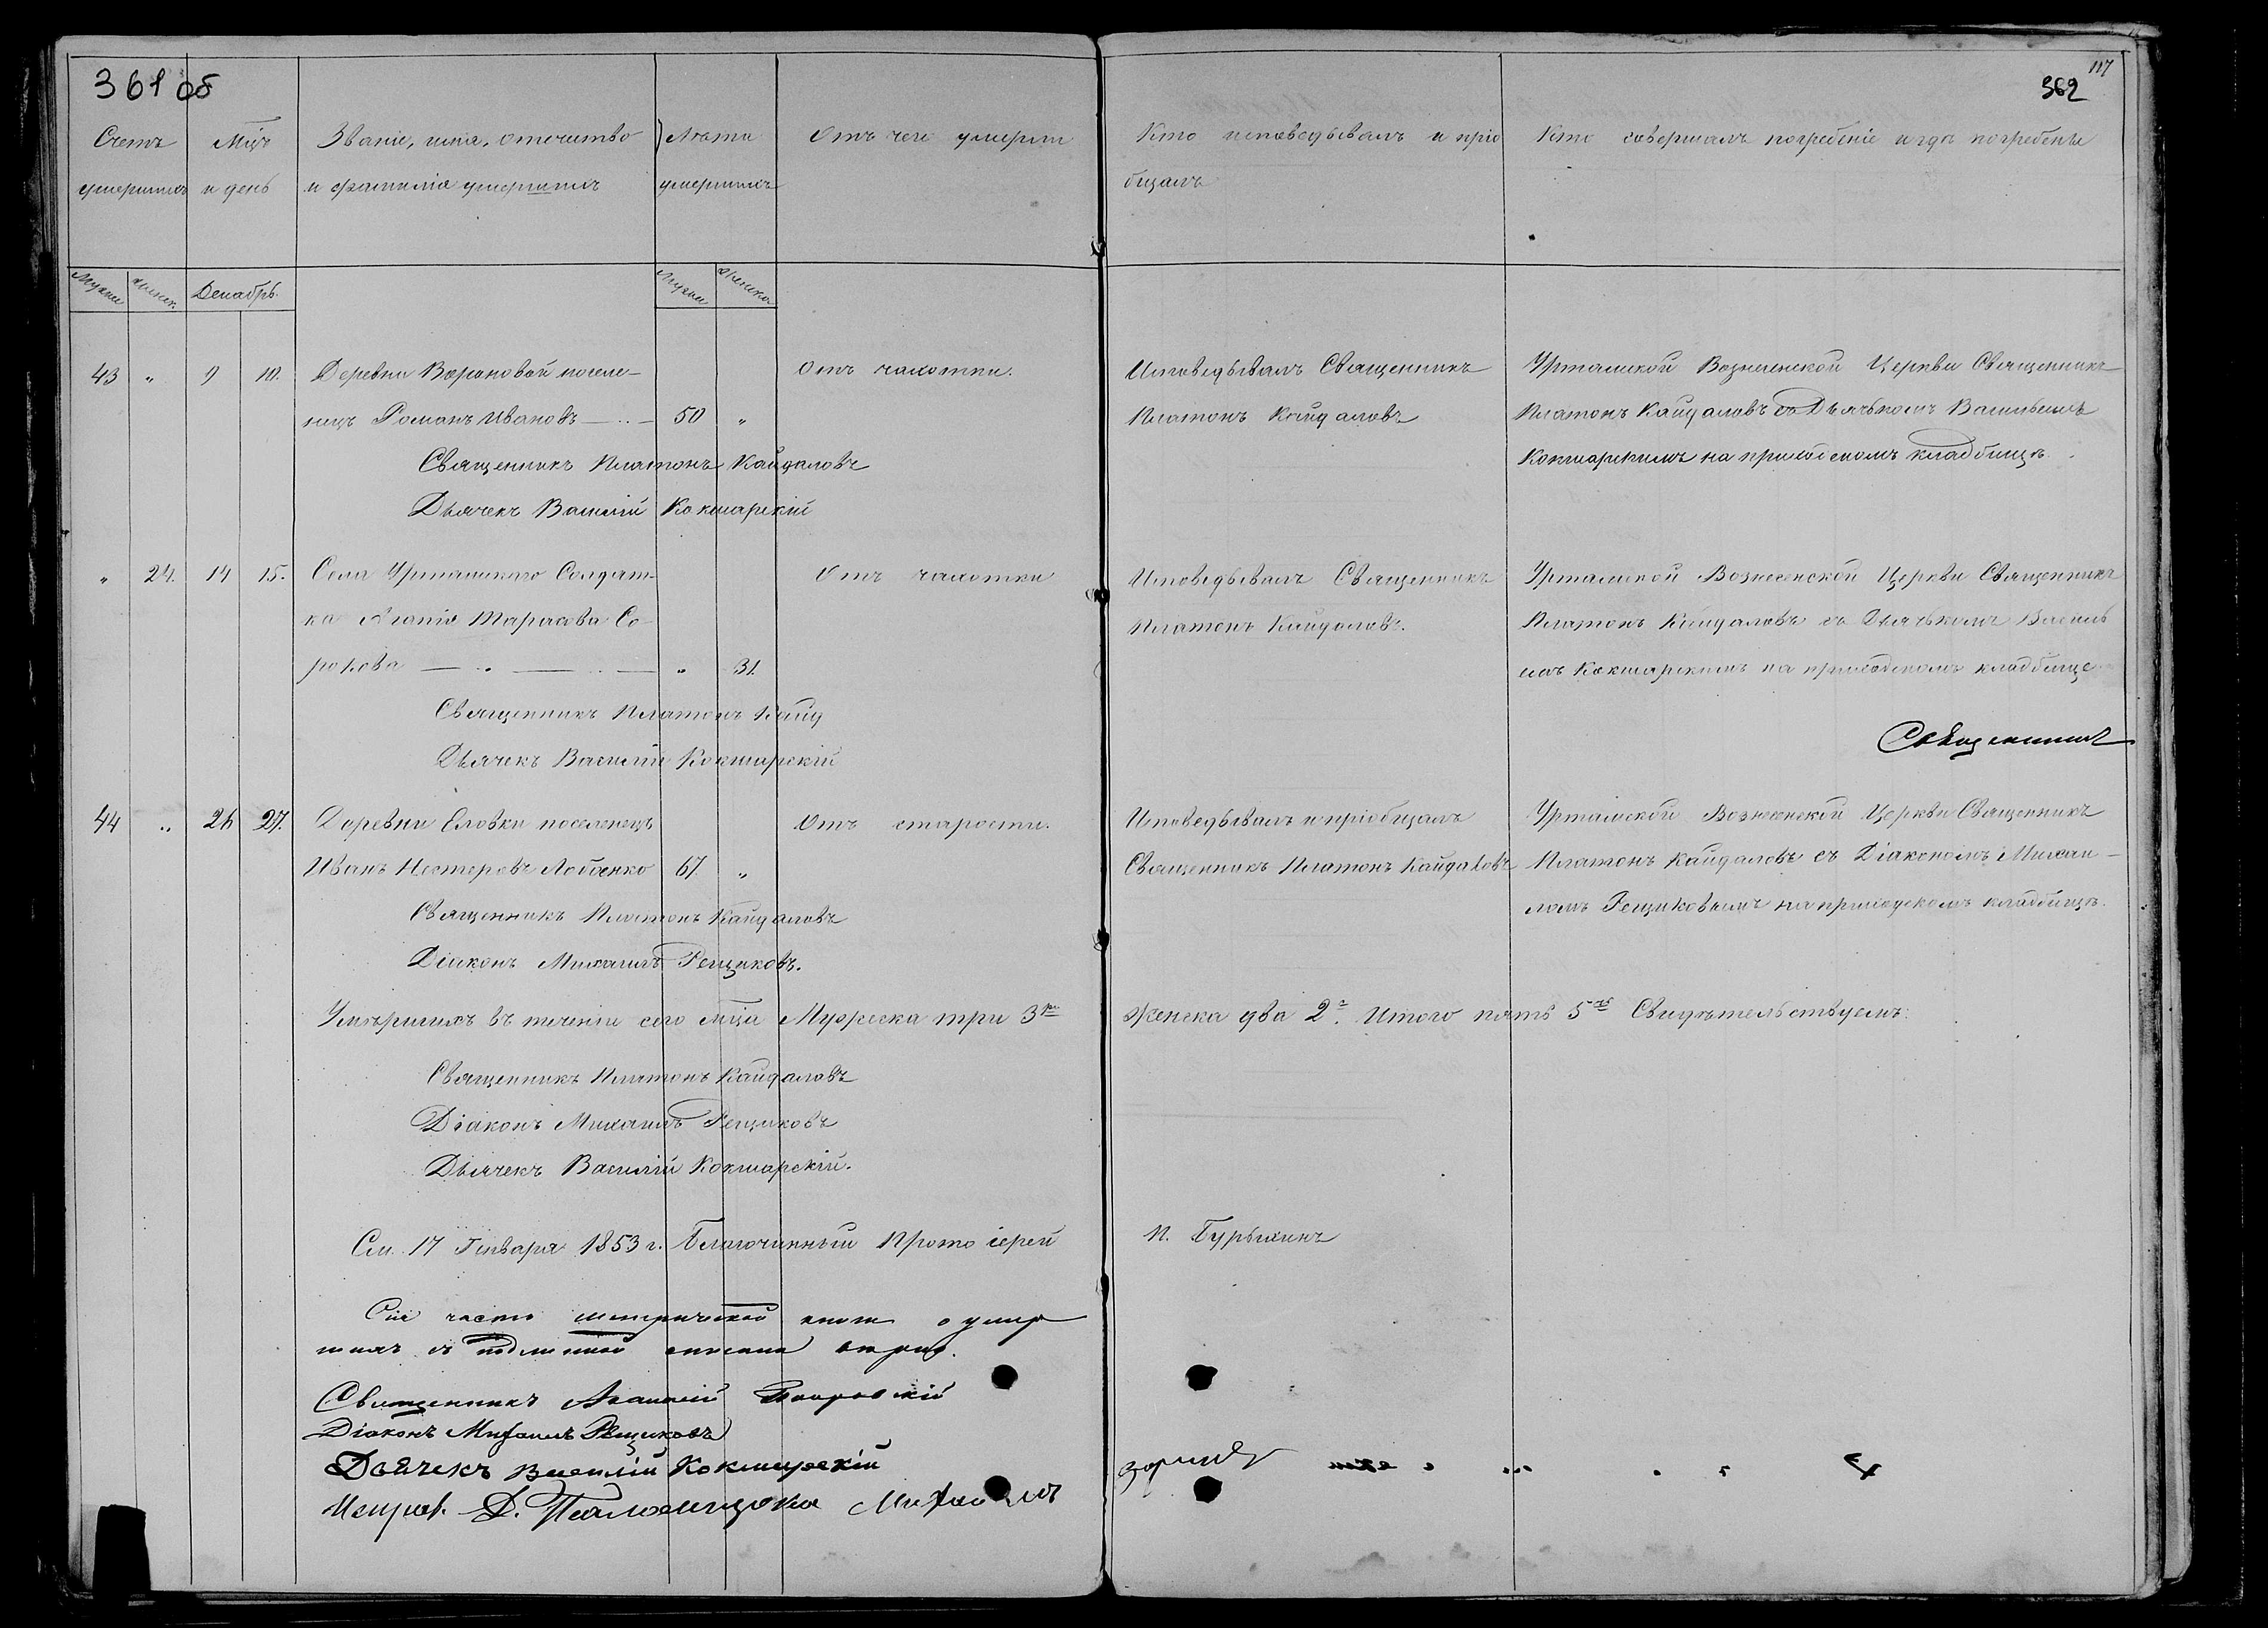 361 об
117
362
Счетъ умершихъ
Мцъ и день
Званіе, имя, отечитво и фамилія умершихъ
Лѣта умершихъ
Отъ чего умерли
Кто исповедывалъ и пріобщалъ
Кто совершалъ погребеніе и гдѣ погребены
Мужск
женск.
Декабрь.
Мужск
Женска
43 " 9 10. Деревни Вороновой поселе-
нецъ Романъ Ивановъ 50 "
Отъ чахотки.
Исповедывалъ Священникъ
Платонъ Кайдаловъ
Уртамской Вознесенской Церкви Священникъ
Платонъ Кайдаловъ съ Дьячькомъ Васильемъ
Кокшарскимъ на приходскомъ кладбищѣ.
Священникъ Платонъ Кайдаловъ
Дьячекъ Василій Кокшарскій
" 24. 14 15. Села Уртамскаго Солдат-
ка Агапія Тарасова Со-
рокова " 31.
Отъ чахотки
Исповедывалъ Священникъ
Платонъ Кайдаловъ.
Уртамской Вознесенской Церкви Священникъ
Платонъ Кайдаловъ съ Дьячькомъ Василь
емъ Кокшарскимъ на приходскомъ кладбище
Священникъ Платонъ Кайд
Дьячекъ Василій Кокшарскій
Священникъ
44 " 26 27. Деревни Еловки поселенецъ
Иванъ Нестеровъ Лобенко 67. "
Отъ старости.
Исповедывалъ и пріобщалъ
Священникъ Платонъ Кайдаловъ
Уртамской Вознесенской Церкви Священникъ
Платонъ Кайдаловъ съ Діакономъ Михаи-
ломъ Рещиковымъ на приходскомъ кладбищѣ.
Священникъ Платонъ Кайдаловъ
Діаконъ Михаилъ Рещиковъ.
Умершихъ въ теченіи сего мца Мужеска три 3 Женска два 2. Итого пять 5 Свидѣтельствуемъ:
Священникъ Платонъ Кайдаловъ
Діаконъ Михаилъ Рещиковъ
Дьячекъ Василій Кокшарскій.
См. 17 Генваря 1853 г. Благочинный Протоіерей П. Гурьихинъ
Сія часть метрической книги о умер
шихъ съ подлинной списана вѣрно.
Священникъ
Діаконъ Михаилъ Рещиковъ
Дьячекъ Василій Кокшарскій